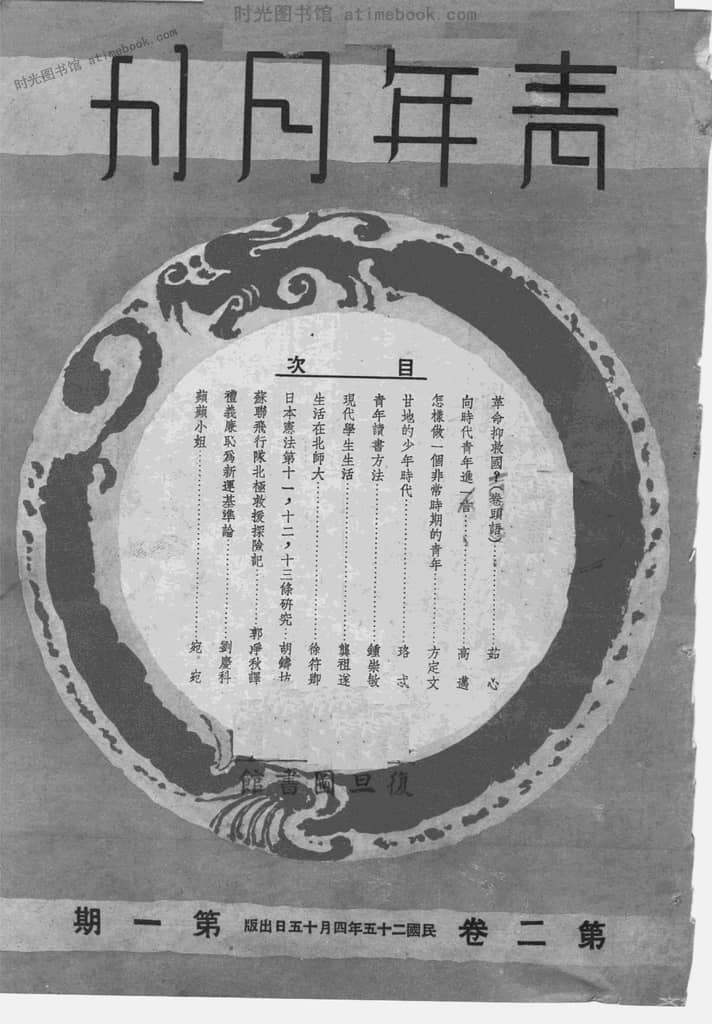 时光图书馆 atimebook.com
时光图书馆 atimebook.com
青年月刊
目次
革命抑救國？（卷頭語）……茹心
向時代青年進一言……高邁
怎樣做一個非常時期的青年……方定文
甘地的少年時代……珞
青年讀書方法……鍾崇敏
現代學生生活……龔祖遂
生活在北師大……徐符鄉
日本憲法第十一，十二，十三條研究…胡鑄
蘇聯飛行隊北極救援探險記……郭凈秋譯
禮義廉恥為新運基準論……劉慶科
蘋蘋小姐……宛宛
復旦圖書館
第二卷 民國二十五年四月十五日出版 第一期